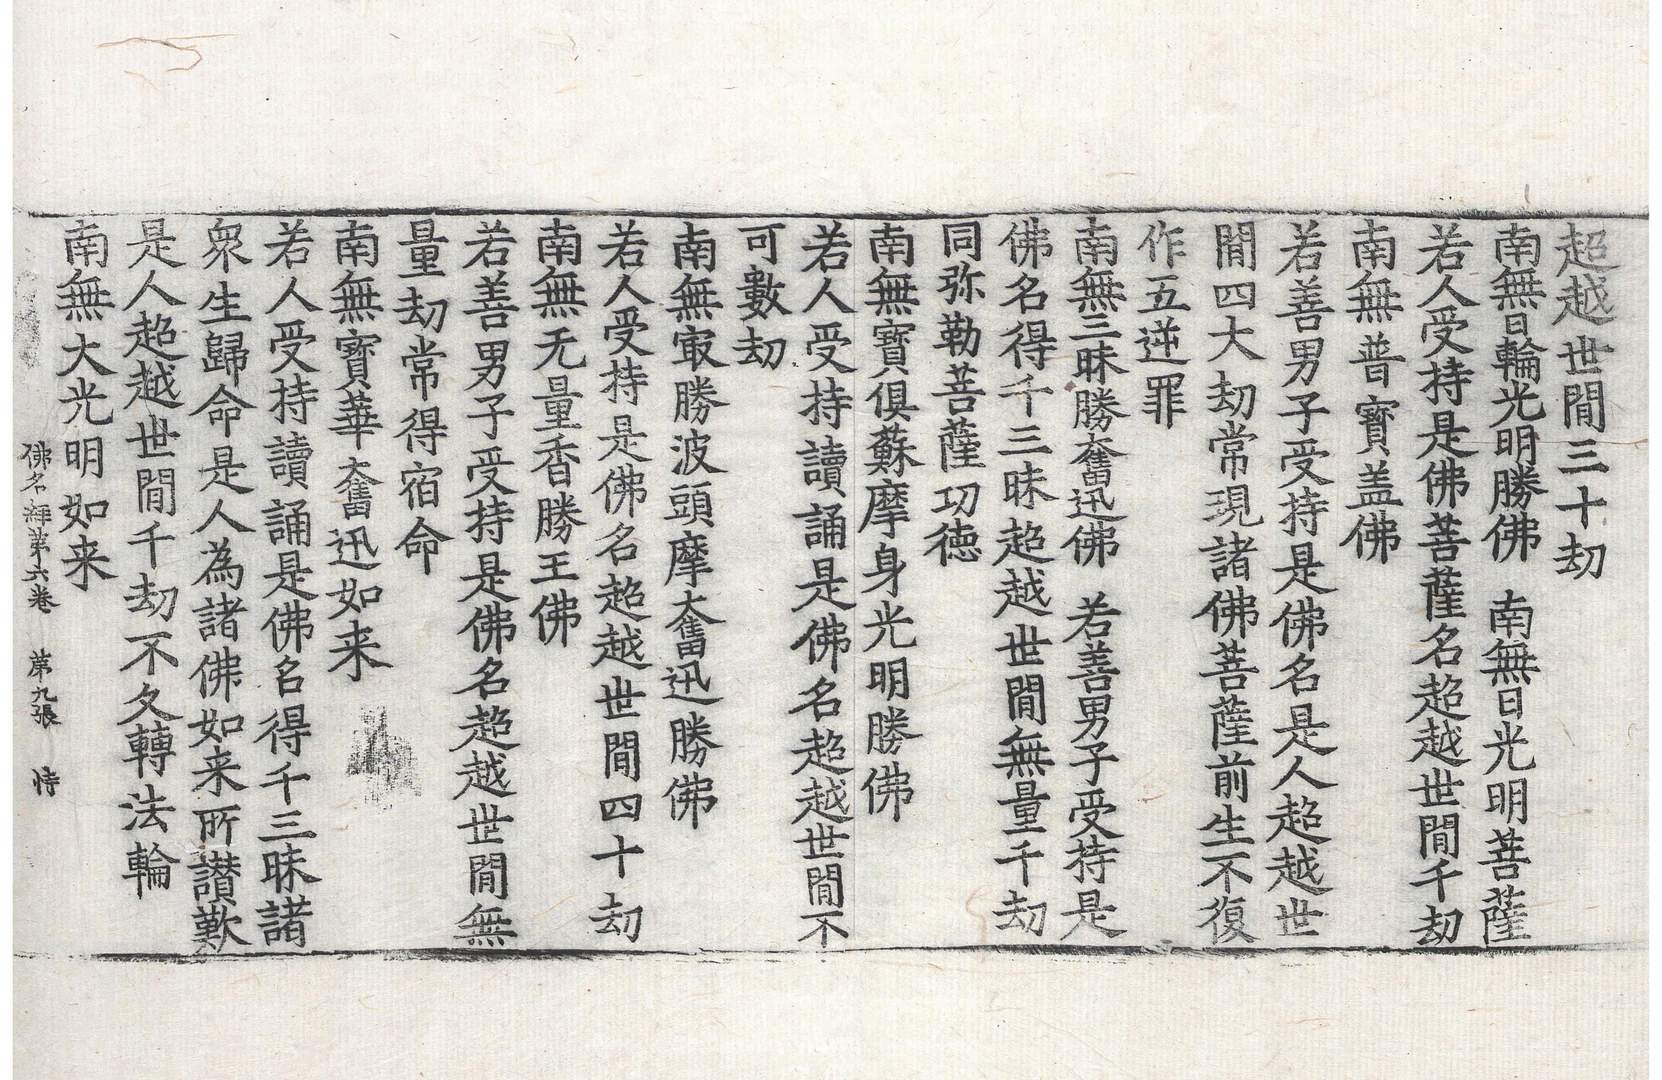 超越世間三十劫
南無日輪光明勝佛　南無日光明菩薩
若人受持是佛菩薩名超越世間千劫
南無普寶盖佛
若善男子受持是佛名是人超越世
間四大劫常現諸佛菩薩前生不復
作五逆罪
南無三昧勝奮迅佛　若善男子受持是
佛名得千三昧超越世間無量千劫
同弥勒菩薩功徳
南無寶俱蘇摩身光明勝佛
若人受持讀誦是佛名超越世間不
可數劫
南無㝡勝波頭摩奮迅勝佛
若人受持是佛名超越世間四十劫
南無无量香勝王佛
若善男子受持是佛名超越世間無
量劫常得宿命
南無寶華奮迅如来
若人受持讀誦是佛名得千三昧諸
衆生歸命是人為諸佛如来所讃歎
是人超越世間千劫不久轉法輪
南無大光明如来
佛名經第六卷　第九張　恃